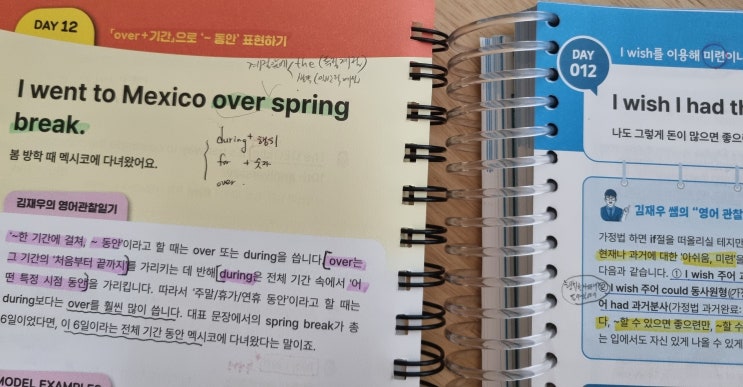 DAY 12
「over+기간」으로 '~ 동안' 표현하기
the
I went to Mexico over spring
break.
봄 방학 때 멕시코에 다녀왔어요.
during +
for + 숫자
over
김재우의 영어관찰일기
'~한 기간에 걸쳐, ~ 동안'이라고 할 때는 over 또는 during을 씁니다. over는
그 기간의 '처음부터 끝까지'를 가리키는 데 반해 during은 전체 기간 속에서 '어
떤 특정 시점 동안'을 가리킵니다. 따라서 '주말/휴가/연휴 동안'이라고 할 때는
during보다는 over를 훨씬 많이 씁니다. 대표 문장에서의 spring break가 총
6일이었다면, 이 6일이라는 전체 기간 동안 멕시코에 다녀왔다는 말이죠.
MODEL EXAMPLES
DAY
012
I wish를 이용해 미련이나
I wish I had th
나도 그렇게 돈이 많으면 좋으
김재우 쌤의 "영어 관찰
가정법 하면 if절을 떠올리실 테지만
현재나 과거에 대한 '아쉬움, 미련'을
다음과 같습니다. ① I wish 주어 과
I wish 주어 could 동사원형(가정
어 had 과거분사(가정법 과거완료:
다, ~할 수 있으면 좋으련만, ~할 수
는 입에서도 자신 있게 나올 수 있게